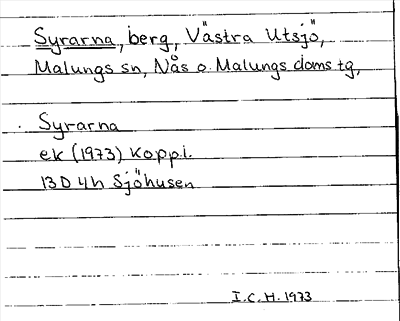 Syrarna, berg, Västra Utsjö,
Malungs sn, Nås o. Malungs doms tg,
Syrarna
ek (1973) Koppl.
13D 4h Sjöhusen
I.C.H. 1973